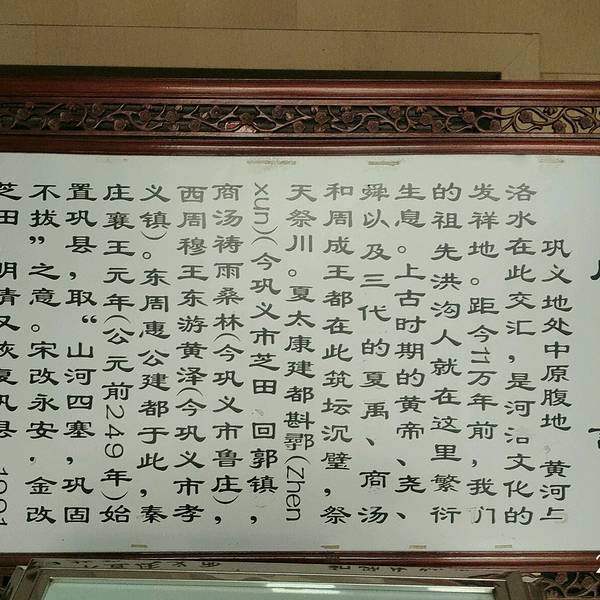 巩义地处中原腹地,黄河与
洛水在此交汇,是河洛文化的
发祥地。距今11万年前,我们
的祖先洪沟人就在这里繁衍
生息。上古时期的黄帝、尧、
舜以及三代的夏禹、商汤
和周成王都在此筑坛沉璧,祭
天祭川。夏太康建都斟鄩(Zhen
xun)(今巩义市芝田、回郭镇,
商汤祷雨桑林(今巩义市鲁庄),
西周穆王东游黄泽(今巩义市孝
义镇)。东周惠公建都于此,秦
庄襄王元年(公元前249年)始
置巩县,取“山河四塞,巩固
不拔”之意。宋改永安,金改
芝田,明清又恢复巩县。1991